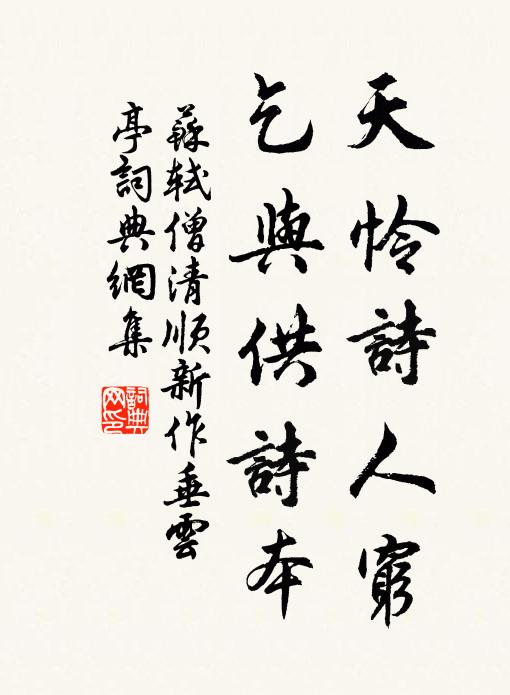 天憐詩人窮
乞與供詩本
蘇軾僧清順新作垂雲
亭詞典網集
詞典
网印